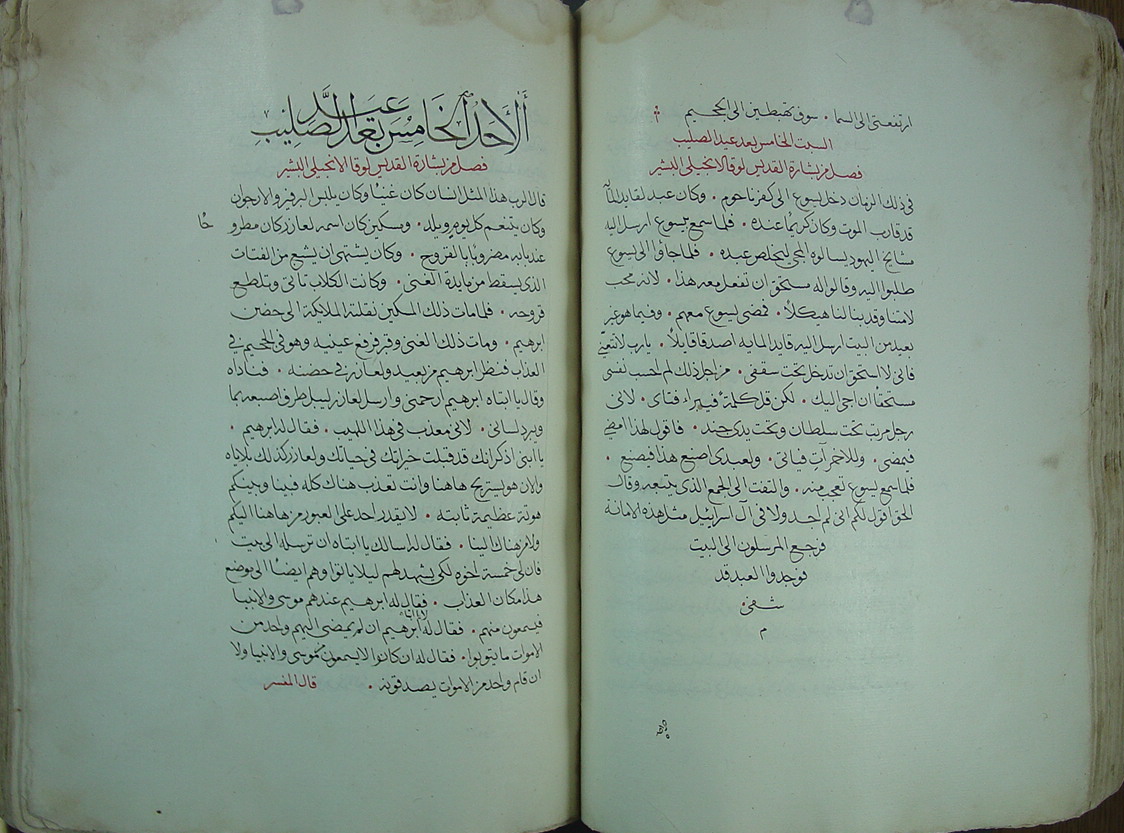 ارتفعتي الى السما ۰ سوف تهبطين الى الجحيم
السبت الخامس بعد عيد الصليب
فصل من بشارة القديس لوقا الانجيلي البشير
في ذلك الزمان دخل يسوع الى كفرناحوم ۰ وكان عبد لقايد الماة
قد قارب الموت وكان كريمًا عنده ۰ فلما سمع بيسوع ارسل اليه
مشايخ اليهود يسالوه المجي ليخلص عبده ۰ فلما جاؤا الى يسوع
طلبوا اليه وقالوا له مستحق ان تفعل معه هذا ۰ لانه محب
لامتنا وقد بنا لنا هيكلاً ۰ فمضى يسوع معهم ۰ وفيما هو غير
بعيد من البيت ارسل اليه قايد المايه اصدقا قايلاً ۰ يا رب لا تتعنى
فاني لا استحق ان تدخل تحت سقفي ۰ من اجل ذلك لم احسب نفسي
مستحقًا ان اجي اليك ۰ لكن قل كلمة فيبرا فتاي ۰ لاني
رجل مرتب تحت سلطان وتحت يدي جند ۰ فاقول لهذا امضي
فيمضي ۰ وللاخر آت فياتي ۰ ولعبدي اصنع هذا فيصنع ۰
فلما سمع يسوع تعجب منه ۰ والتفت الى الجمع الذي يتبعه وقال
الحق اقول لكم اني لم اجد ولا في آل اسراييل مثل هذه الامانة
فرجع المرسلون الى البيت
فوجدوا العبد قد
شفي
م
ألأحد الخامس بعد عيد الصليب
فصل من بشارة القديس لوقا الانجيلي البشير
قال الرب هذا المثل انسان كان غنيًا وكان يلبس البرفير والارجوان
وكان يتنعم كل يوم ويلد ۰ ومسكين كان اسمه لعازر كان مطرو
حًا
عند بابه مضروبًا بالقروح ۰ وكان يشتهي ان يشبع من الفتات
الذي يسقط من مايدة الغني ۰ وكانت الكلاب تاتي وتلطع
قروحه ۰ فلما مات ذلك المسكين نقلته الملايكة الى حضن
ابرهيم ۰ ومات ذلك الغني وقبر فرفع عينيه وهو في الجحيم في
العذاب فنظر ابرهيم من بعيد ولعازر في حضنه ۰ فناداه
وقال يا ابتاه ابرهيم ارحمني وارسل لعازر ليبل طرف اصبعه بما
ويبرد لساني ۰ لاني معذب في هذا اللهيب ۰ فقال له ابرهيم ۰
يا ابني اذكر انك قد قبلت خيراتك في حياتك ولعازر كذلك بلاياه
والان هو يستريح هاهنا وانت تعذب هناك كله فبينا وبينكم
هوتة عظيمة ثابته ۰ لا يقدر احد على العبور من هاهنا اليكم
ولا من هناك الينا ۰ فقال له اسالك يا ابتاه ان ترسله الى بيت
فان لي خمسة اخوه لكي يشهد لهم ليلا ياتوا وهم ايضًا الى موضع
هذا مكان العذاب ۰ فقال له ابرهيم عندهم موسى والانبيا
فيسمعون منهم ۰ فقال له ابرهيم ان لم يمضي اليهم واحد من
الاموات ما يتوبوا ۰ فقال له ان كانوا لا يسمعون موسى والانبيا ولا
ان قام واحد من الاموات يصدقونه ۰ قال المفسر